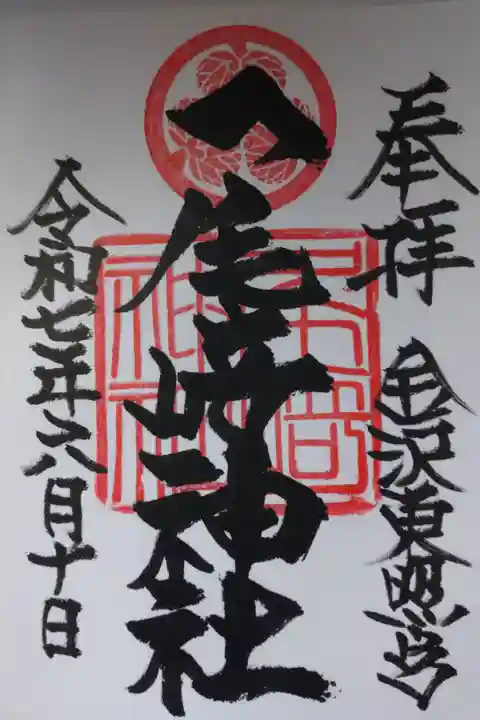 奉拝
金沢東照宮
尾崎神社
尾崎神社
令和七年六月十日